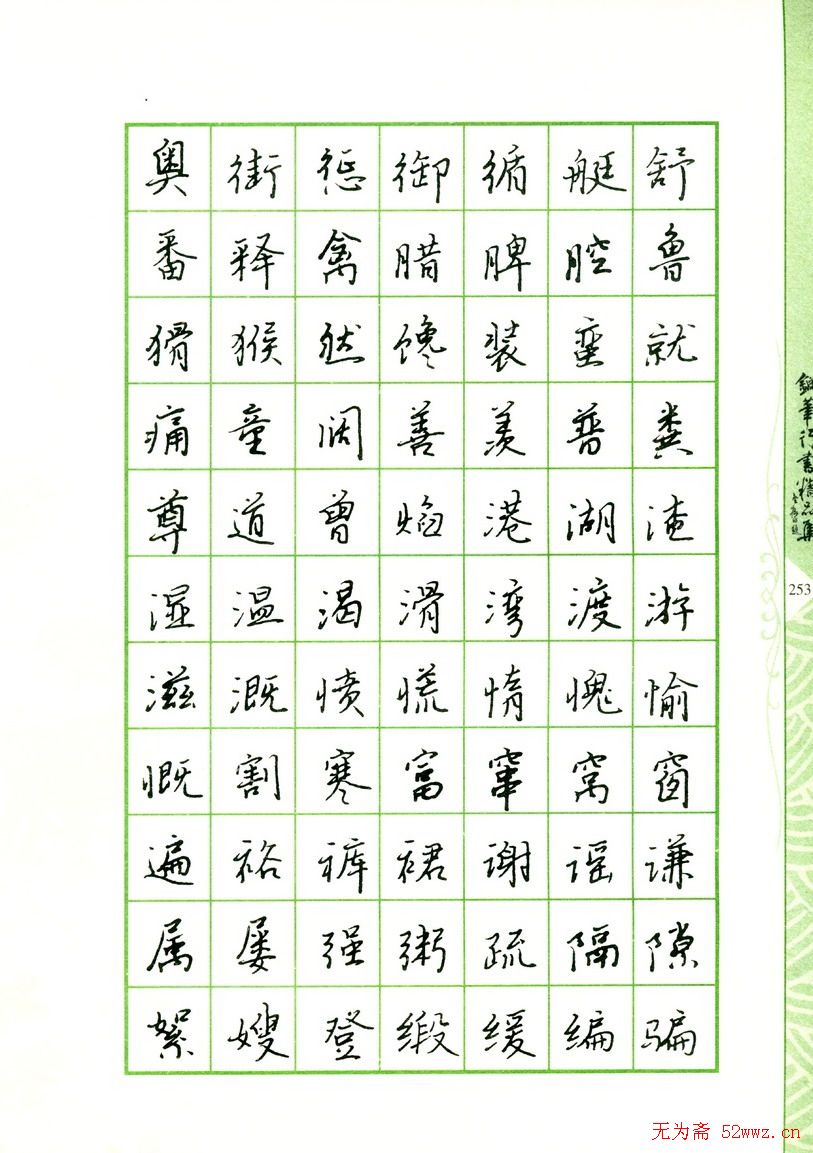 奥街惩御循艇舒
番释禽腊脾腔鲁
猾猴然馋装蛮就
痛童阔善羡普粪
尊道曾焰港湖渣
湿温渴滑湾渡游
滋溉愤慌惰愧愉
慨割寒富窜窝窗
遍裕裤裙谢谣谦
属屡强粥疏隔隙
絮嫂登缎缓编骗
鋼筆行書精品集
253
无为斋 52wwz.cn